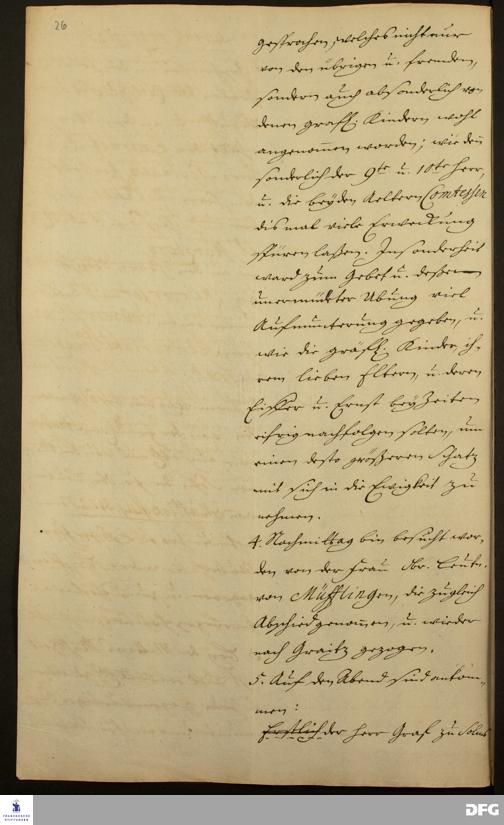 26
gesprochen, welches nicht nur
von den übrigen u. fremden,
sondern auch absonderlich von
denen gräfl. Kindern wohl
angenom̄en worden; wie den̄
sonderlich der 9te u. 10te Herr,
u. die beyden Aeltern Comtessen
dismal viele Erweckung
spüren laßen. Insonderheit
ward zum Gebet u. deßen
unermüdeter Ubung viel
Aufmunterung gegeben, u.
wie die gräfl. Kinder, ih-
ren lieben Eltern, u. deren
Eifer u. Ernst bey Zeiten
eifrig nachfolgen solten, um
einen desto größeren Schatz
mit sich in die Ewigkeit zu
nehmen.
4. Nachmittag bin besucht wor-
den von der Frau Obr. Leutn.
von Müfflingen, die zugleich
Abschied genom̄en, u. wieder
nach Graitz gezogen.
5. Auf den Abend sind ankom-
men:
Erstlich der Herr Graf zu Solms
FRANCKESCHE STIFTUNGEN
DFG